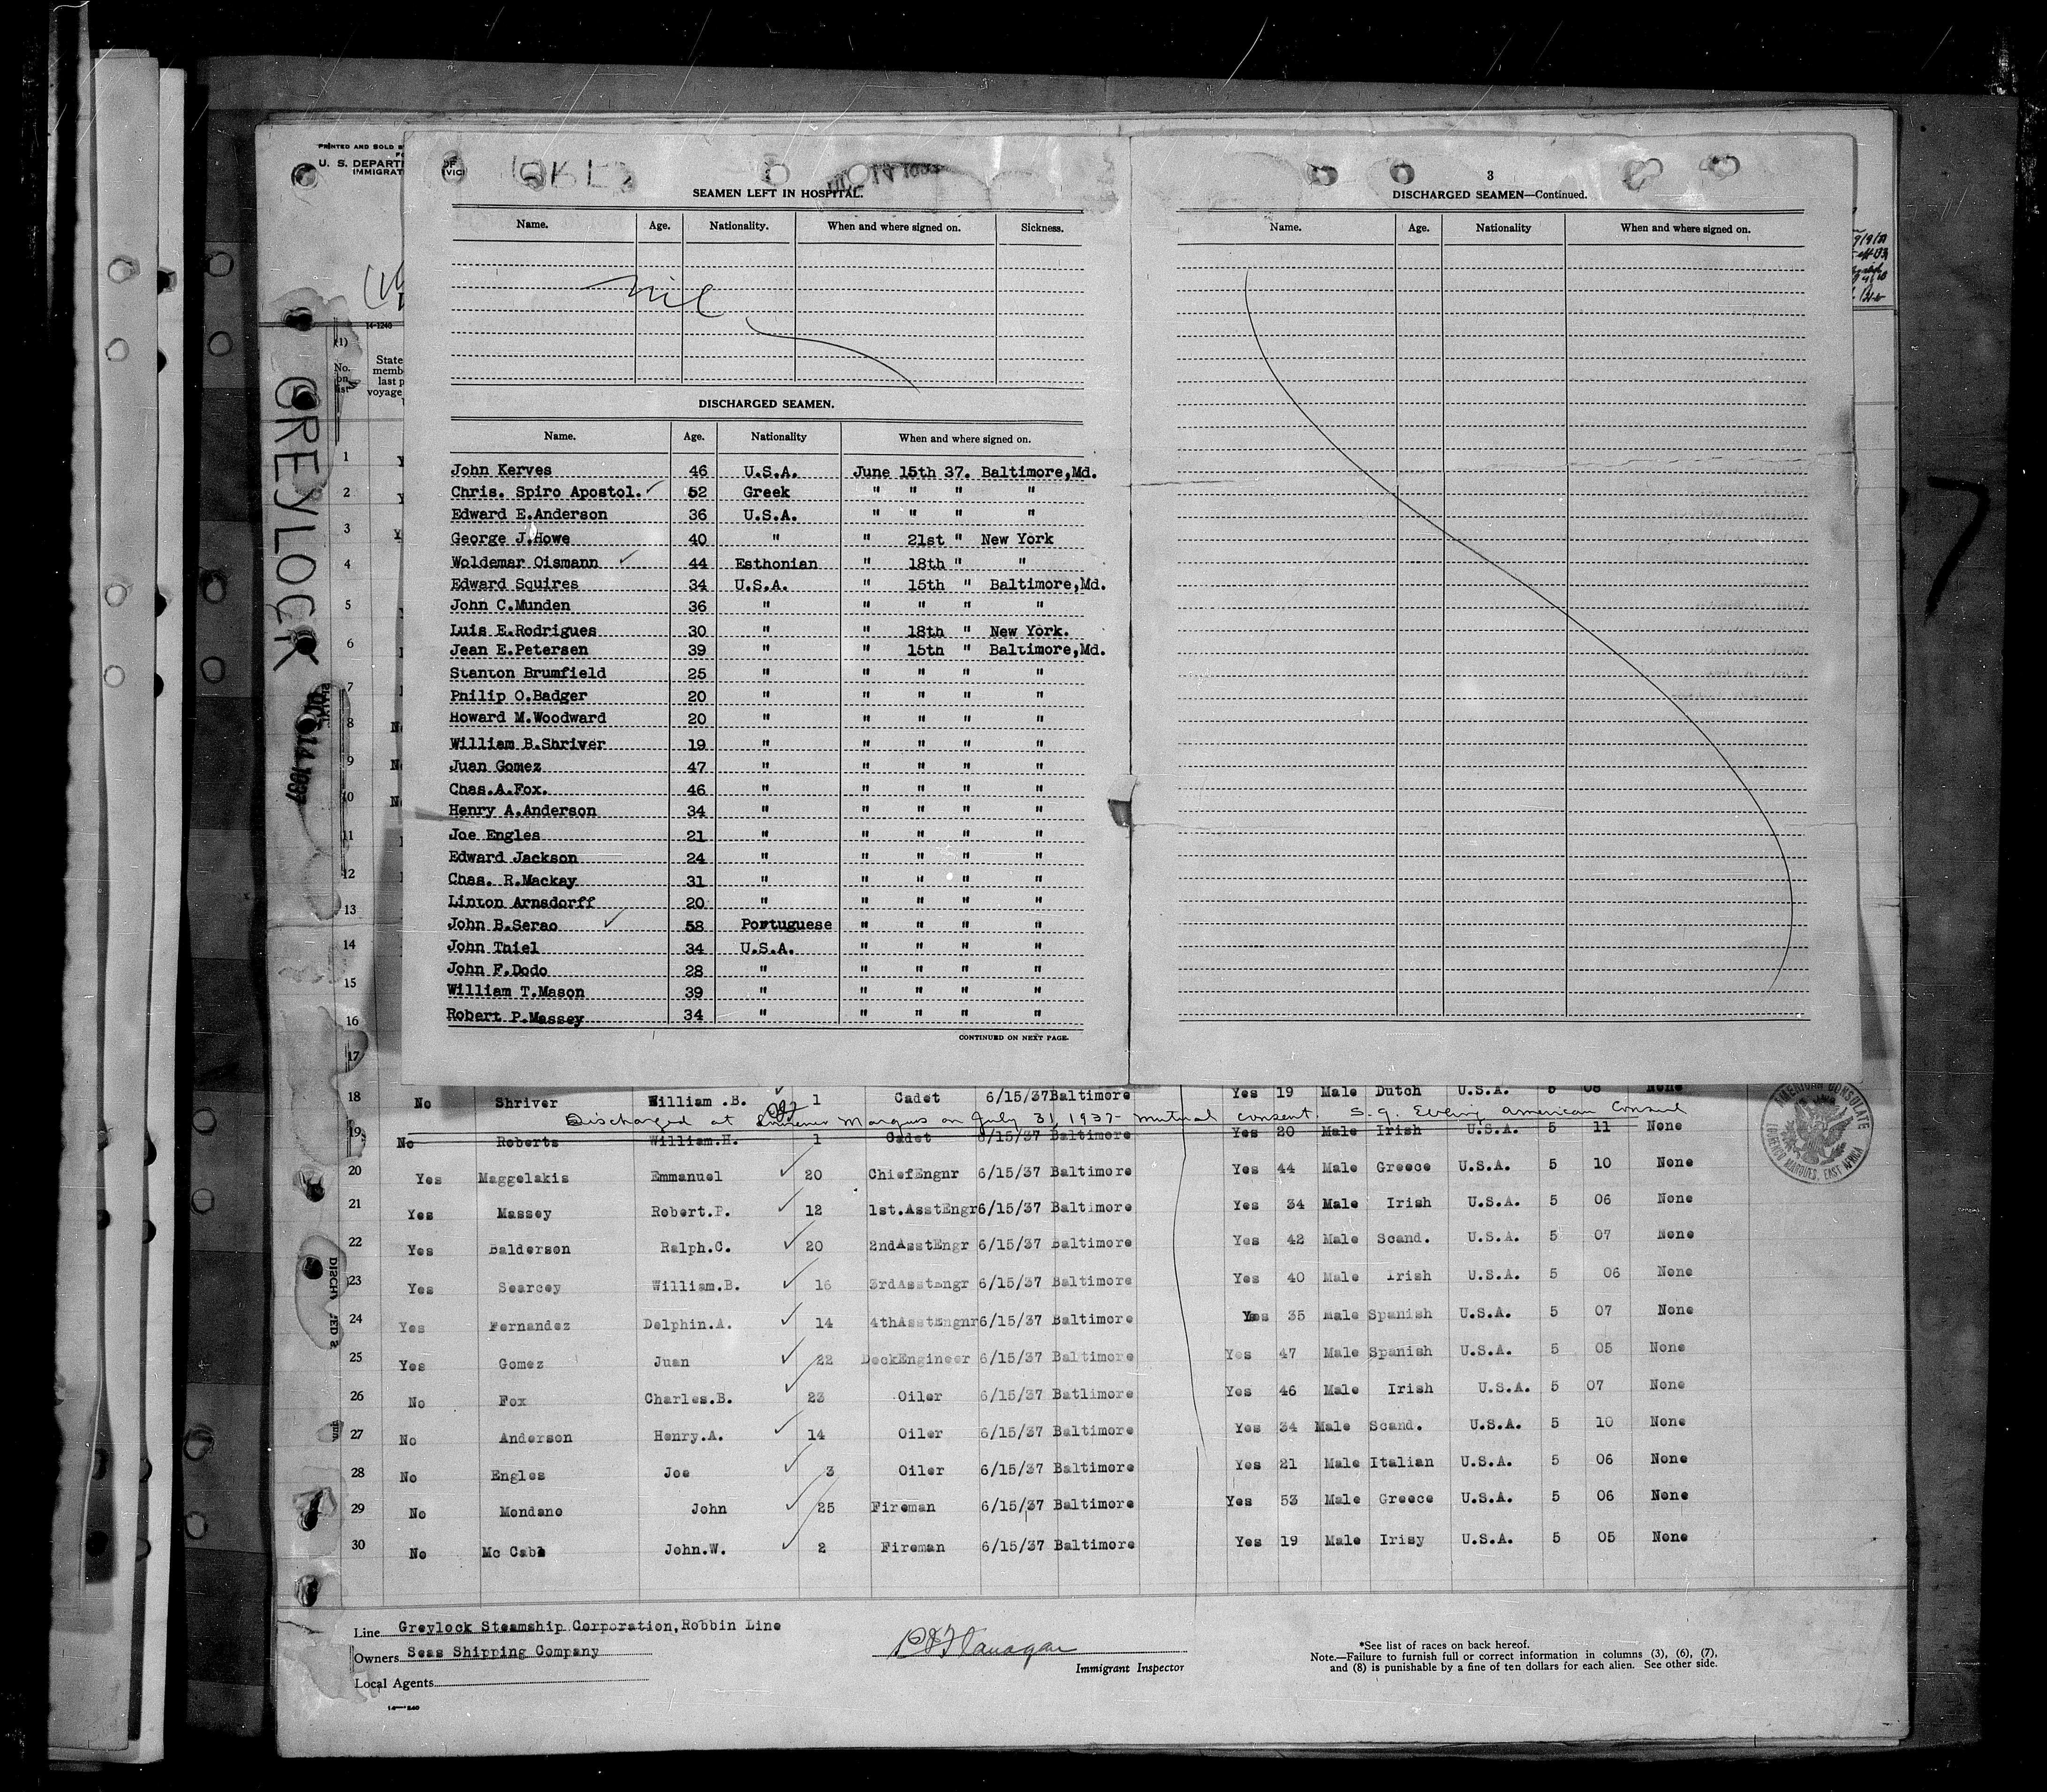 PRINTED AND SOLD B
U. S. DEPARTM
IMMIGRAT
14-1240
(1)
No. on list
State
memb
last p
voyage
GREYLOCK
14 1937
SEAMEN LEFT IN HOSPITAL.
Name. Age. Nationality. When and where signed on. Sickness.
nil
DISCHARGED SEAMEN.
Name. Age. Nationality When and where signed on.
John Kerves 46 U.S.A. June 15th 37. Baltimore,Md.
Chris. Spiro Apostol. 52 Greek " " " "
Edward E.Anderson 36 U.S.A. " " " "
George J.Howe 40 " " 21st " New York
Woldemar Oismann 44 Esthonian " 18th " "
Edward Squires 34 U.S.A. " 15th " Baltimore,Md.
John C.Munden 36 " " " " "
Luis E.Rodrigues 30 " " 18th " New York.
Jean E.Petersen 39 " " 15th " Baltimore,Md.
Stanton Brumfield 25 " " " " "
Philip O.Badger 20 " " " " "
Howard M.Woodward 20 " " " " "
William B.Shriver 19 " " " " "
Juan Gomez 47 " " " " "
Chas.A.Fox. 46 " " " " "
Henry A.Anderson 34 " " " " "
Joe Engles 21 " " " " "
Edward Jackson 24 " " " " "
Chas. R.Mackay 31 " " " " "
Linton Arnsdorff 20 " " " " "
John B.Serao 58 Portuguese " " " "
John Thiel 34 U.S.A. " " " "
John F.Dodo 28 " " " " "
William T.Mason 39 " " " " "
Robert P.Massey 34 " " " " "
CONTINUED ON NEXT PAGE.
3
DISCHARGED SEAMEN—Continued.
Name. Age. Nationality When and where signed on.
1
2
3
4
5
6
7
8
9
10
11
12
13
14
15
16
17
18 No Shriver William .B. 1 Cadet 6/15/37 Baltimore Yes 19 Male Dutch U.S.A. 5 08 None
Discharged at Lourenco Marques on July 31, 1937- mutual consent. American Consul
19 No Roberts William.H. 1 Cadet 6/15/37 Baltimore Yes 20 Male Irish U.S.A. 5 11 None
20 Yes Maggelakis Emmanuel 20 ChiefEngnr 6/15/37 Baltimore Yes 44 Male Greece U.S.A. 5 10 None
21 Yes Massey Robert.P. 12 1st.AsstEngr 6/15/37 Baltimore Yes 34 Male Irish U.S.A. 5 06 None
22 Yes Balderson Ralph.C. 20 2ndAsstEngr 6/15/37 Baltimore Yes 42 Male Scand. U.S.A. 5 07 None
23 Yes Searcey William.B. 16 3rdAsstEngr 6/15/37 Baltimore Yes 40 Male Irish U.S.A. 5 06 None
24 Yes Fernandez Delphin.A. 14 4thAsstEngnr 6/15/37 Baltimore Yes 35 Male Spanish U.S.A. 5 07 None
25 Yes Gomez Juan 22 DeckEngineer 6/15/37 Baltimore Yes 47 Male Spanish U.S.A. 5 05 None
26 No Fox Charles.B. 23 Oiler 6/15/37 Batlimore Yes 46 Male Irish U.S.A. 5 07 None
27 No Anderson Henry.A. 14 Oiler 6/15/37 Baltimore Yes 34 Male Scand. U.S.A. 5 10 None
28 No Engles Joe 3 Oiler 6/15/37 Baltimore Yes 21 Male Italian U.S.A. 5 06 None
29 No Mondano John 25 Fireman 6/15/37 Baltimore Yes 53 Male Greece U.S.A. 5 06 None
30 No Mc Cabe John.W. 2 Fireman 6/15/37 Baltimore Yes 19 Male Irisy U.S.A. 5 05 None
AMERICAN CONSULATE
LOURENCO MARQUES, EAST AFRICA
Line Greylock Steamship Corporation,Robbin Line
Owners Seas Shipping Company
Local Agents
Immigrant Inspector
*See list of races on back hereof.
Note.—Failure to furnish full or correct information in columns (3), (6), (7),
and (8) is punishable by a fine of ten dollars for each alien. See other side.